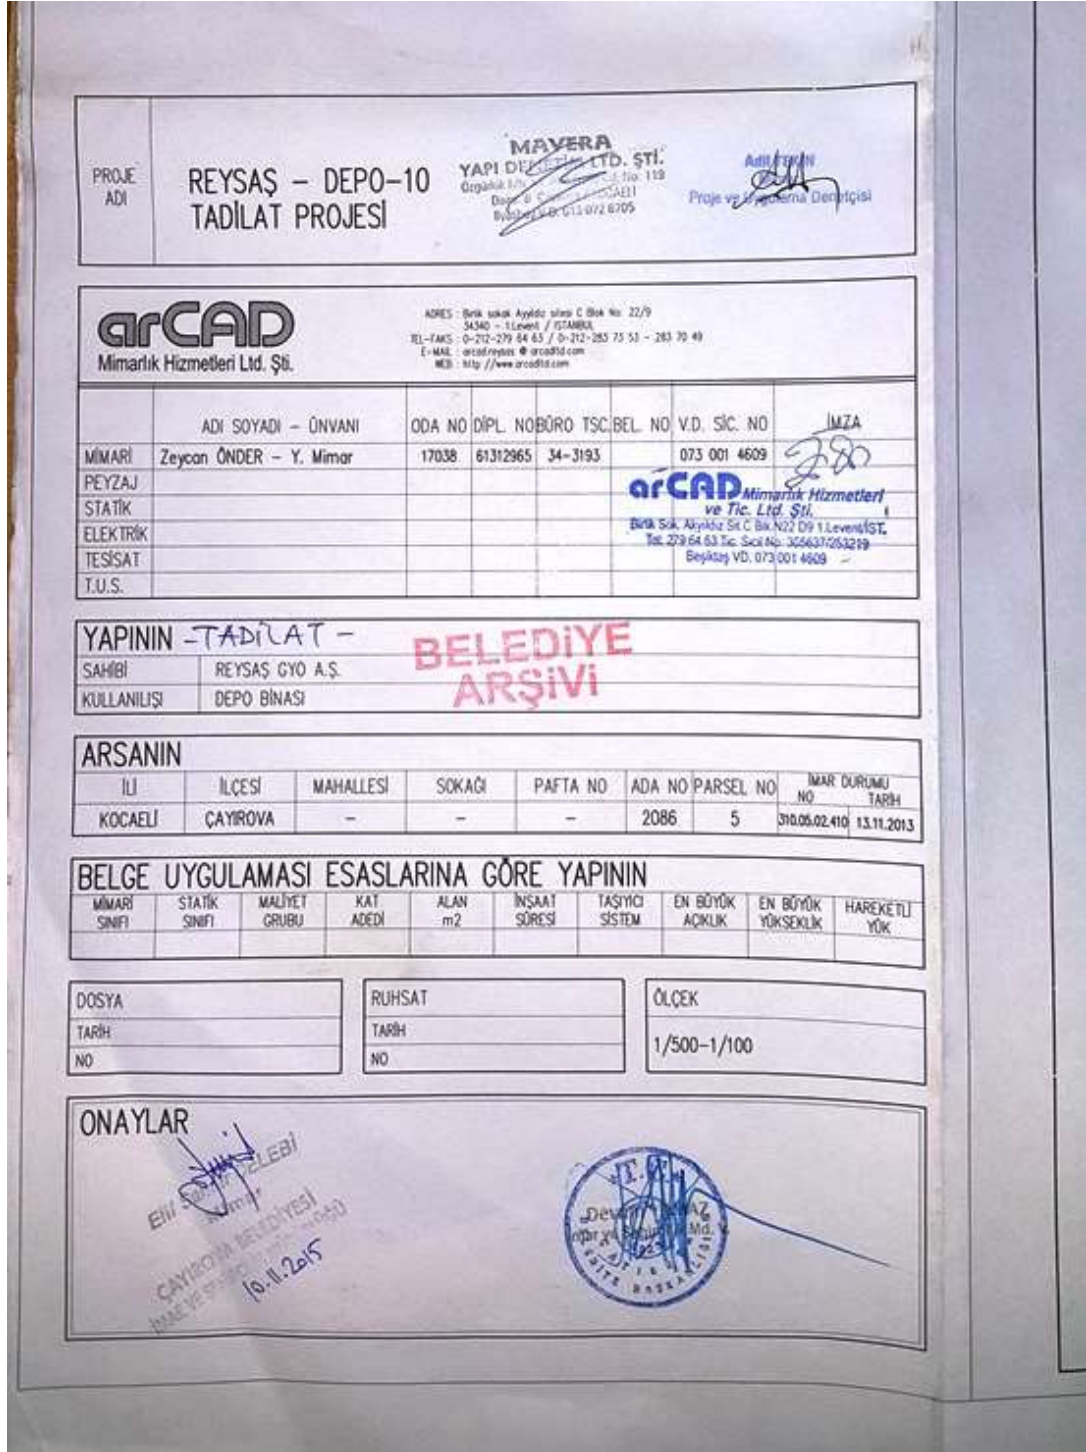 PROJE
ADI
REYSAŞ - DEPO-10
TADİLAT PROJESİ
MAVERA
YAPI DENETİM LTD. ŞTİ.
No: 119
V.D. 613 072 6705
Adil TEKİN
Proje ve Uygulama Denetçisi
arCAD
Mimarlık Hizmetleri Ltd. Şti.
ADRES : Birlik sokak Ayyıldız sitesi C Blok No: 22/9
34340 - 1.Levent / İSTANBUL
TEL-FAKS : 0-212-279 64 63 / 0-212-283 73 53 - 283 70 49
E-MAIL : arcad.reysas @ arcadltd.com
WEB : http //www.arcadltd.com
ADI SOYADI - ÜNVANI ODA NO DİPL. NO BÜRO TSC. BEL. NO V.D. SİC. NO İMZA
MİMARİ Zeycan ÖNDER - Y. Mimar 17038 61312965 34-3193 073 001 4609
PEYZAJ
STATİK
ELEKTRİK
TESİSAT
T.U.S.
arCAD Mimarlık Hizmetleri
ve Tic. Ltd. Şti.
Birlik Sok. Akyıldız Sit C Blk. N22 D9 1.Levent/İST.
Tel: 279 64 63 Tic. Sicil No: 305637/253219
Beşiktaş VD. 073 001 4609
YAPININ -TADİLAT-
SAHİBİ REYSAŞ GYO A.Ş.
KULLANILIŞI DEPO BİNASI
BELEDİYE
ARŞİVİ
ARSANIN
İLİ İLÇESİ MAHALLESİ SOKAĞI PAFTA NO ADA NO PARSEL NO İMAR DURUMU
NO TARİH
KOCAELİ ÇAYIROVA - - - 2086 5 310.05.02.410 13.11.2013
BELGE UYGULAMASI ESASLARINA GÖRE YAPININ
MİMARİ SINIFI STATİK SINIFI MALİYET GRUBU KAT ADEDİ ALAN m2 İNŞAAT SÜRESİ TAŞIYICI SİSTEM EN BÜYÜK AÇIKLIK EN BÜYÜK YÜKSEKLİK HAREKETLİ YÜK
DOSYA
TARİH
NO
RUHSAT
TARİH
NO
ÖLÇEK
1/500-1/100
ONAYLAR
Elif ÇELEBİ
Mimar
ÇAYIROVA BELEDİYESİ
İMAR VE
10.11.2015
T.C.